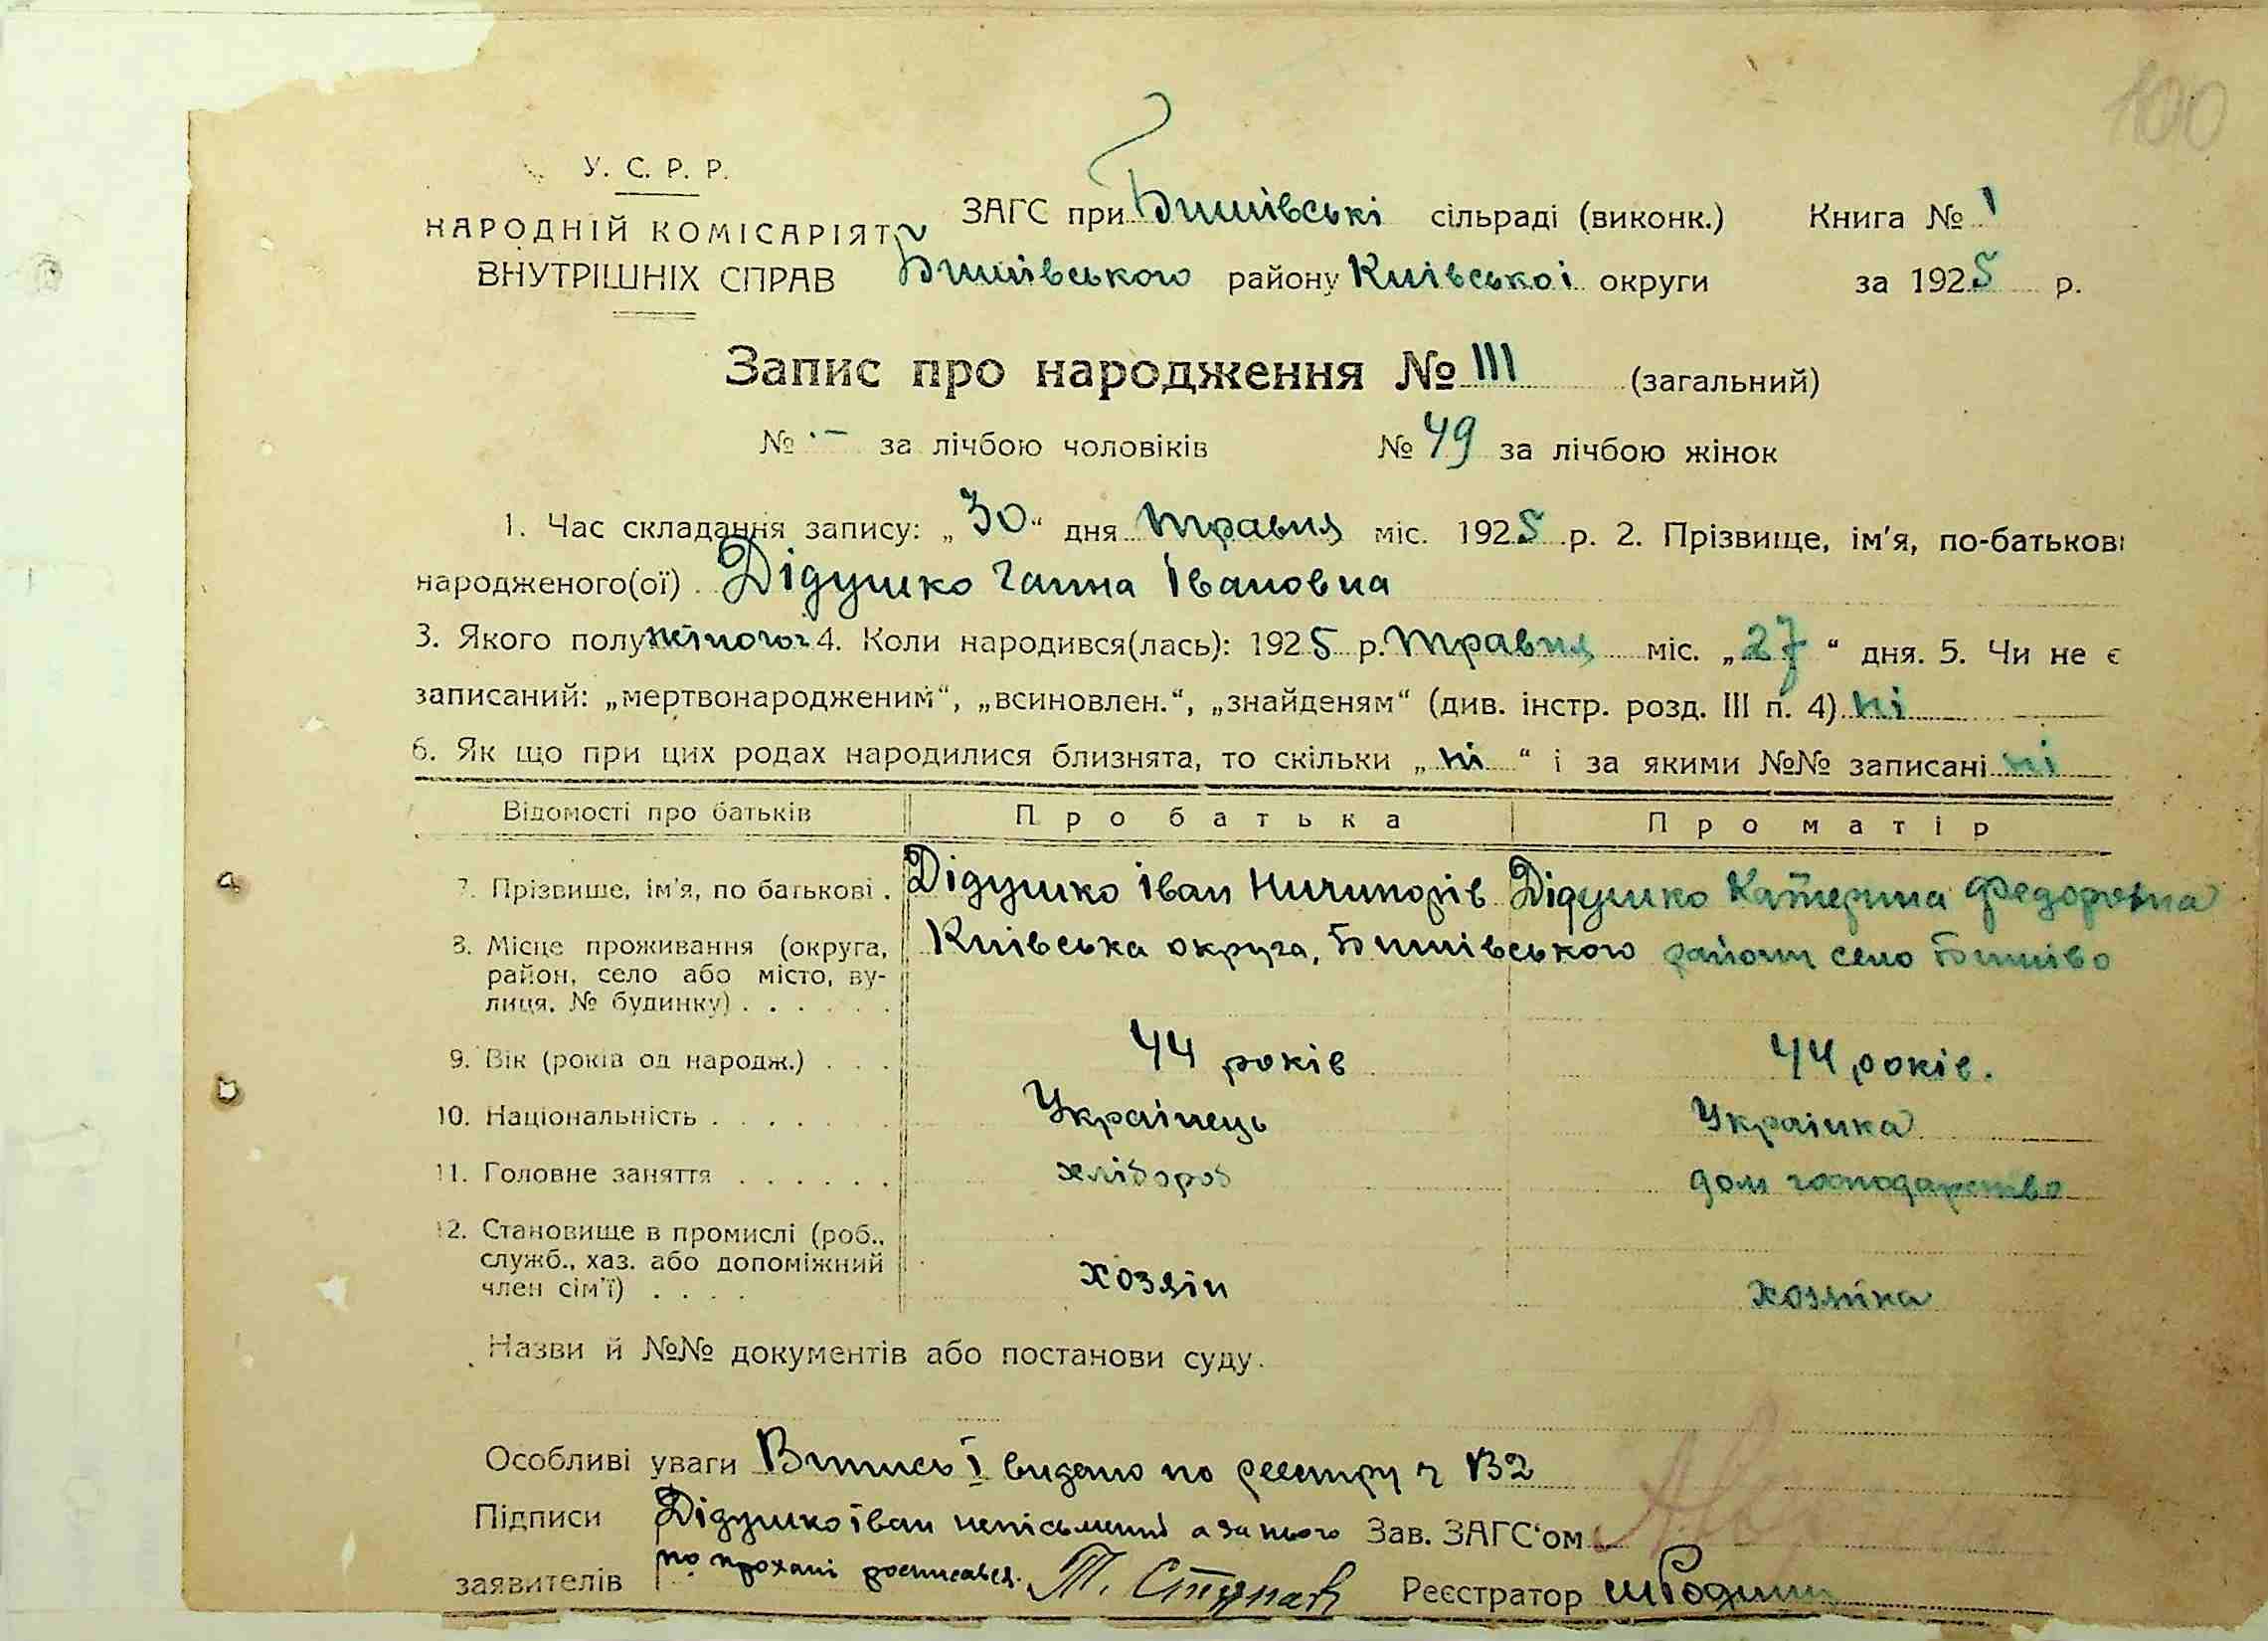 100
У. С. Р. Р.
НАРОДНІЙ КОМІСАРІЯТ
ВНУТРІШНІХ СПРАВ
ЗАГС при Бишівські сільраді (виконк.) Книга № 1
Бишівського району Київської округи за 1925 р.
Запис про народження № 111 (загальний)
№ - за лічбою чоловіків № 49 за лічбою жінок
1. Час складання запису: „30“ дня травня міс. 1925 р. 2. Прізвище, ім'я, по-батькові
народженого(ої) Дідушко Ганна Івановна
3. Якого полу жіного 4. Коли народився(лась): 1925 р. травня міс. „27“ дня. 5. Чи не є
записаний: „мертвонародженим“, „всиновлен.“, „знайденям“ (див. інстр. розд. III п. 4) ні
6. Як що при цих родах народилися близнята, то скільки „ні“ і за якими №№ записані ні
Відомості про батьків Про батька Про матір
7. Прізвище, ім'я, по батькові . Дідушко Іван Ничипорів Дідушко Катерина Федоровна
8. Місце проживання (округа, Київська округа, Бишівського району село Бишіво
район, село або місто, ву-
лиця, № будинку) . . . . . .
9. Вік (років од народж.) . . . 44 років 44 років.
10. Національність . . . . . . Українець Українка
11. Головне заняття . . . . . . хлібороб дом господарство
12. Становище в промислі (роб.,
служб., хаз. або допоміжний
член сім'ї) . . . . хозяїн хозяїка
Назви й №№ документів або постанови суду.
Особливі уваги Витись і видано по реєстру ч 132
Підписи Дідушко Іван неписьмений а за нього Зав. ЗАГС'ом
заявителів по прохані росписався. Т. Реєстратор